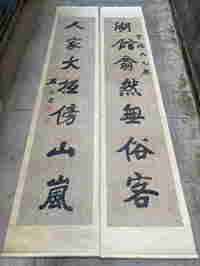 湖館翛然無俗客
人家大抵傍山嵐